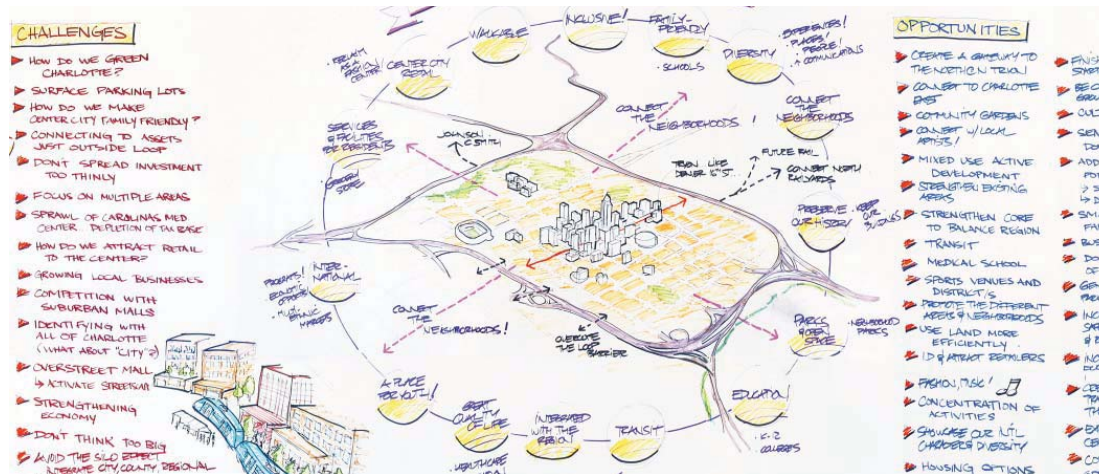 CHALLENGES
HOW DO WE GREEN
CHARLOTTE?
SURFACE PARKING LOTS
HOW DO WE MAKE
CENTER CITY FAMILY FRIENDLY?
CONNECTING TO ASSETS
JUST OUTSIDE LOOP
DON'T SPREAD INVESTMENT
TOO THINLY
FOCUS ON MULTIPLE AREAS
SPRAWL OF CAROLINAS MED
CENTER. DEPLETION OF TAX BASE
HOW DO WE ATTRACT RETAIL
TO THE CENTER?
GROWING LOCAL BUSINESSES
COMPETITION WITH
SUBURBAN MALLS
IDENTIFYING WITH
ALL OF CHARLOTTE
(WHAT ABOUT "CITY"?)
OVERSTREET MALL
ACTIVATE STREETSCAPE
STRENGTHENING
ECONOMY
DON'T THINK TOO BIG
AVOID THE SILO EFFECT
INTEGRATE CITY, COUNTY, REGIONAL
RECLAIM
AS A
FASHION
CENTER
CENTER CITY
RETAIL
WALKABLE
INCLUSIVE!
FAMILY-
FRIENDLY
SCHOOLS
DIVERSITY
EXPERIENCES!
PLACES!
PEOPLE!
COMMUNICATIONS
CONNECT
THE
NEIGHBORHOODS!
CONNECT
THE
NEIGHBORHOODS
SERVICES
& FACILITIES
FOR RESIDENTS
GROCERY
STORE
JOHNSON
C. SMITH
TRYON LIKE
DENVER'S
FUTURE RAIL
CONNECT NORTH
RAILYARDS
PRESERVE
OUR HISTORY
KEEP
OUR
BUILDINGS
INTER-
NATIONAL
MULTI-
ETHNIC
MARKETS
CONNECT
THE
NEIGHBORHOODS!
OVERCOME
THE LOOP
BARRIER
PARKS
& OPEN
SPACE
NEIGHBORHOOD
PARKS
A PLACE
FOR YOUTH!
GREAT
QUALITY
OF LIFE
HEALTHCARE
INTEGRATED
WITH THE
REGION
TRANSIT
EDUCATION
K-12
COLLEGES
OPPORTUNITIES
CREATE A GATEWAY TO
THE NORTH ON TRYON
CONNECT TO CHARLOTTE
EAST
COMMUNITY GARDENS
CONNECT W/ LOCAL
ARTISTS!
MIXED USE ACTIVE
DEVELOPMENT
STRENGTHEN EXISTING
AREAS
STRENGTHEN CORE
TO BALANCE REGION
TRANSIT
MEDICAL SCHOOL
SPORTS VENUES AND
DISTRICTS
PROMOTE THE DIFFERENT
AREAS & NEIGHBORHOODS
USE LAND MORE
EFFICIENTLY
ID & ATTRACT RETAILERS
FASHION, MUSIC!
CONCENTRATION OF
ACTIVITIES
SHOWCASE OUR INT'L
CHARACTER & DIVERSITY
HOUSING OPTIONS